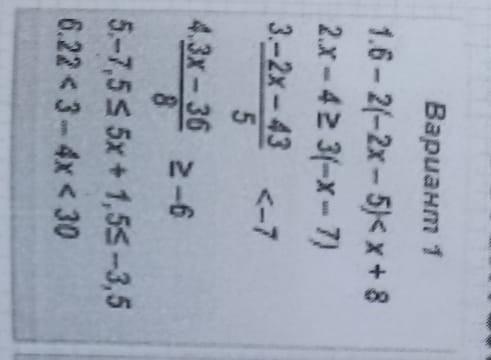 Вариант 1
1. 6 - 2(-2x - 5) < x + 8
2. x - 4 ≥ 3(-x - 7)
3. -2x - 43
5
< -7
4. 3x - 36
8
≥ -6
5. -7,5 ≤ 5x + 1,5 ≤ -3,5
6. 22 < 3 - 4x < 30